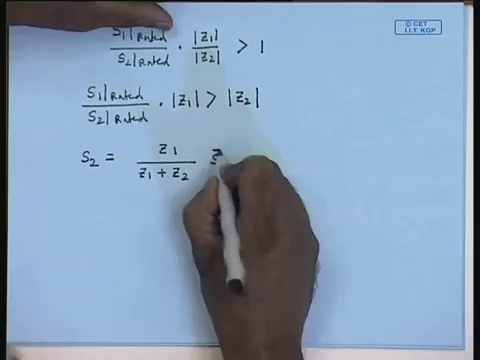 © CET
I.I.T. KGP
S₁|Rated / S₂|Rated · |Z₁| / |Z₂| > 1
S₁|Rated / S₂|Rated · |Z₁| > |Z₂|
S₂ = Z₁ / (Z₁ + Z₂)